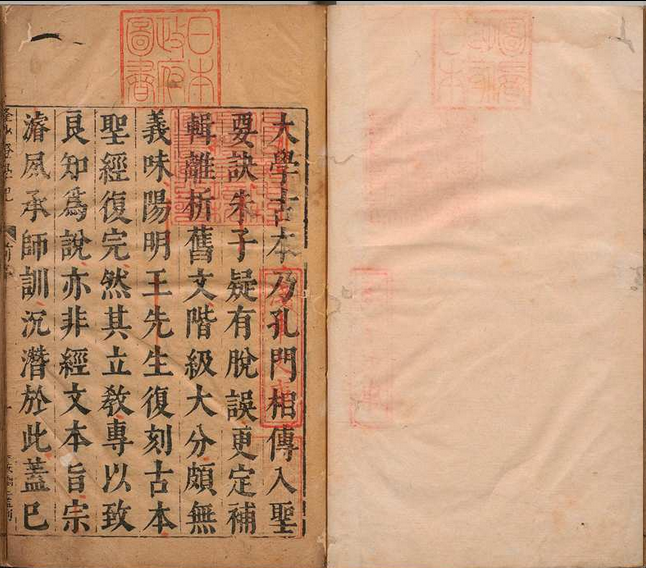 大學古本乃孔門相傳入聖
要訣朱子疑有脫誤更定補
輯離析舊文階級大分頗無
義味陽明王先生復刻古本
聖經復完然其立敎專以致
良知爲說亦非經文本旨宗
濬夙承師訓沉潛於此蓋已
日本
政府
圖書